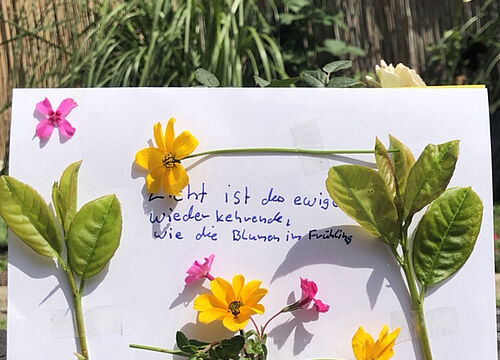 Licht ist das ewig
wiederkehrende,
wie die Blumen im Frühling